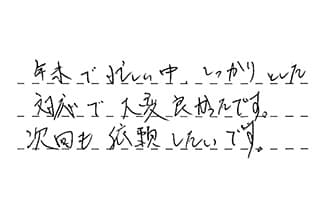 年末で忙しい中、しっかりとした
対応で大変良かったです。
次回も依頼したいです。